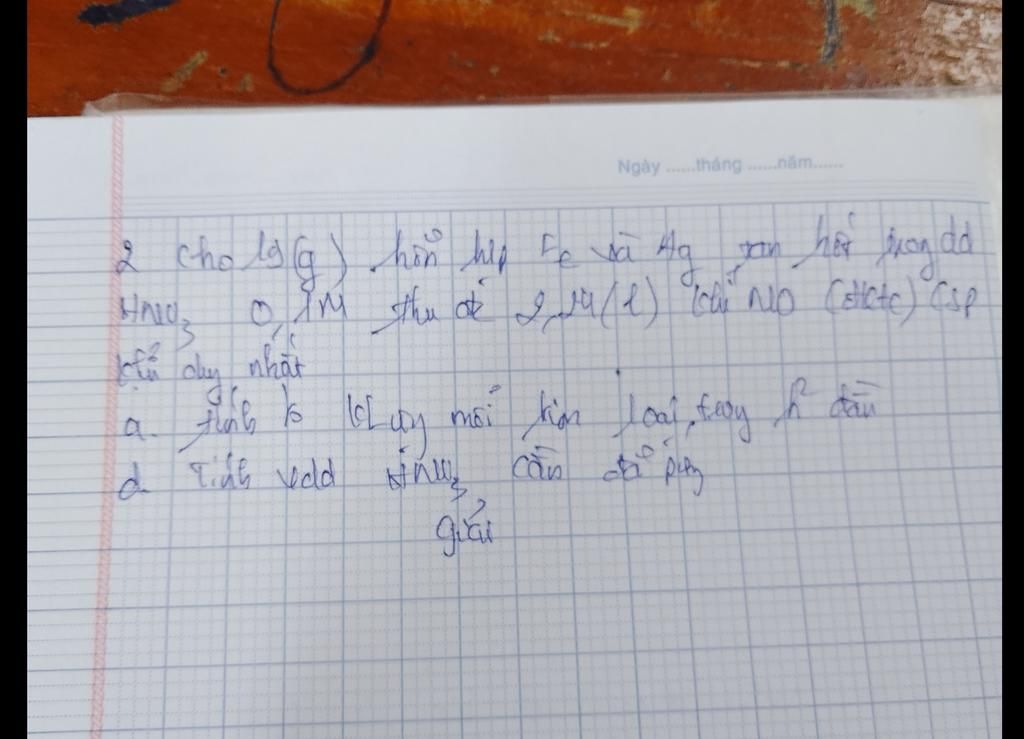 Ngày ......tháng ......năm......
2 Cho 19(g) hỗn hợp Fe và Ag tan hết trong dd
HNO3 0,1M thu đc 2,24(l) khí NO (đktc) (sp
khử duy nhất
a. tính % KL mỗi kim loại trong h² đầu
d. Tính Vdd HNO3 cần để pứ
giải